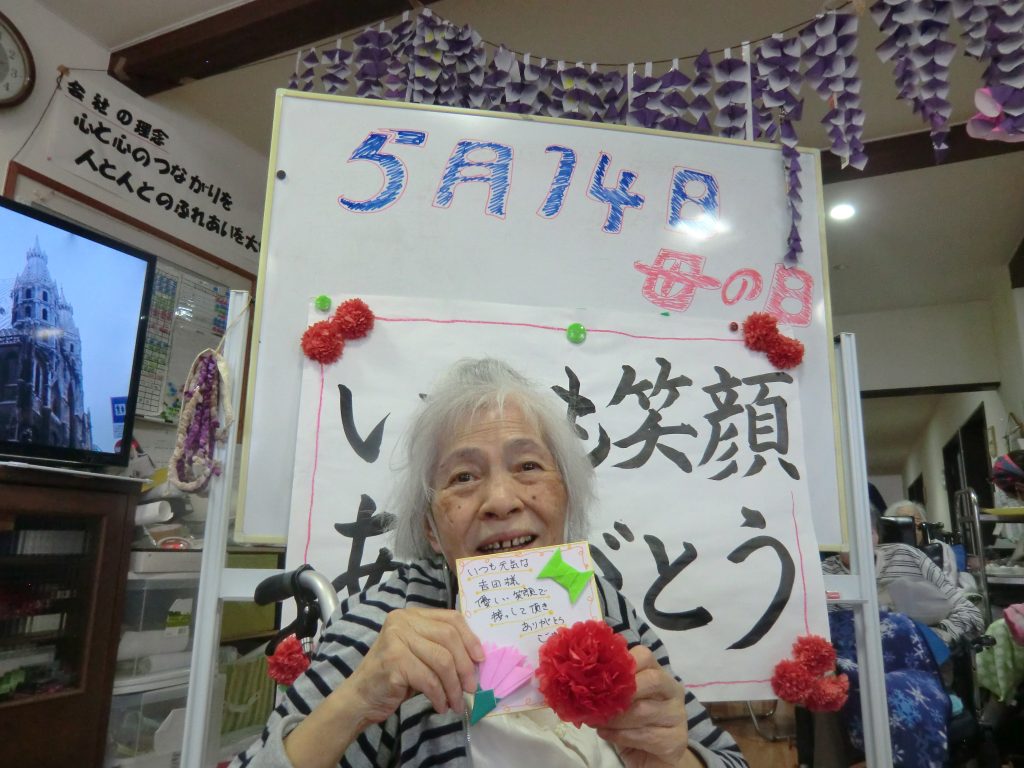 会社の理念
心と心のつながりを
人と人とのふれあいを大
5月14日
母の日
い も笑顔
あ がとう
いつも元気な
吉田様
優しい笑顔で
接して頂き
ありがとう
ござ